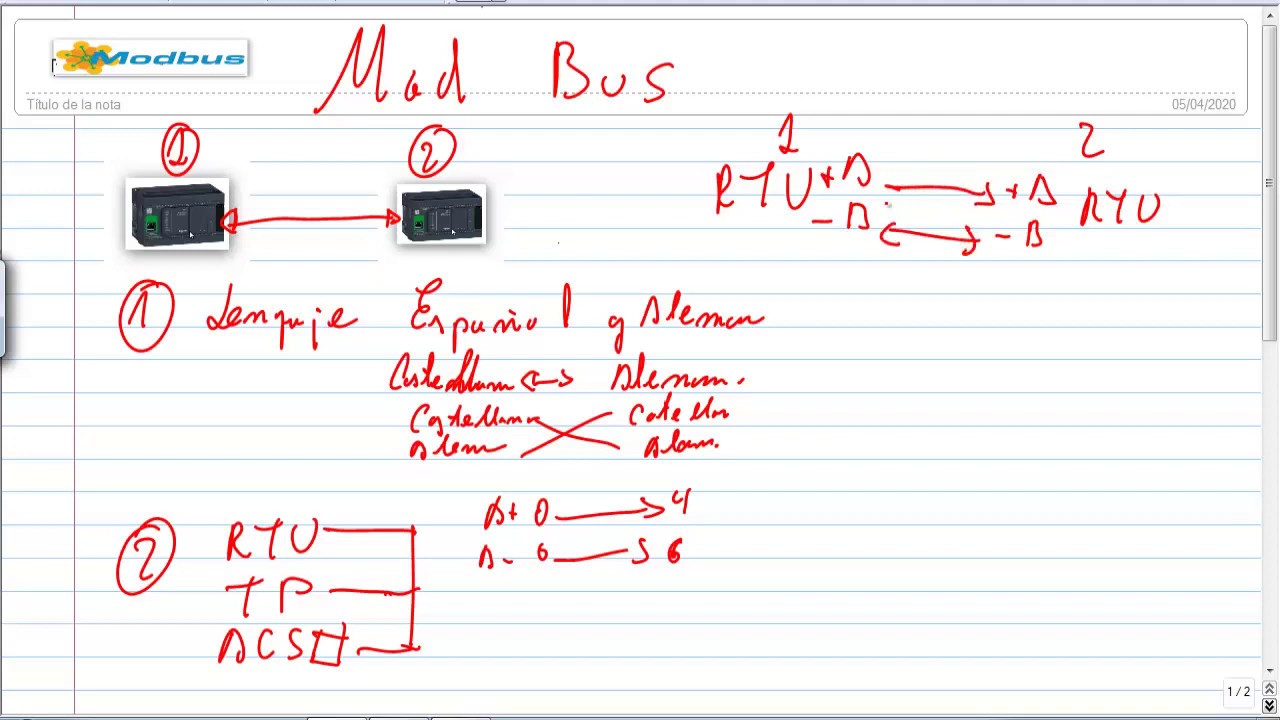 Modbus
Mod Bus
Título de la nota
05/04/2020
1 2
1 2
RTU +A +A RTU
-B -B
1 Lenguaje Español y Aleman
Castellano Aleman.
Castellano
Alem
2 RTU
TP
A+ 0 4
A- 0 6
1 / 2